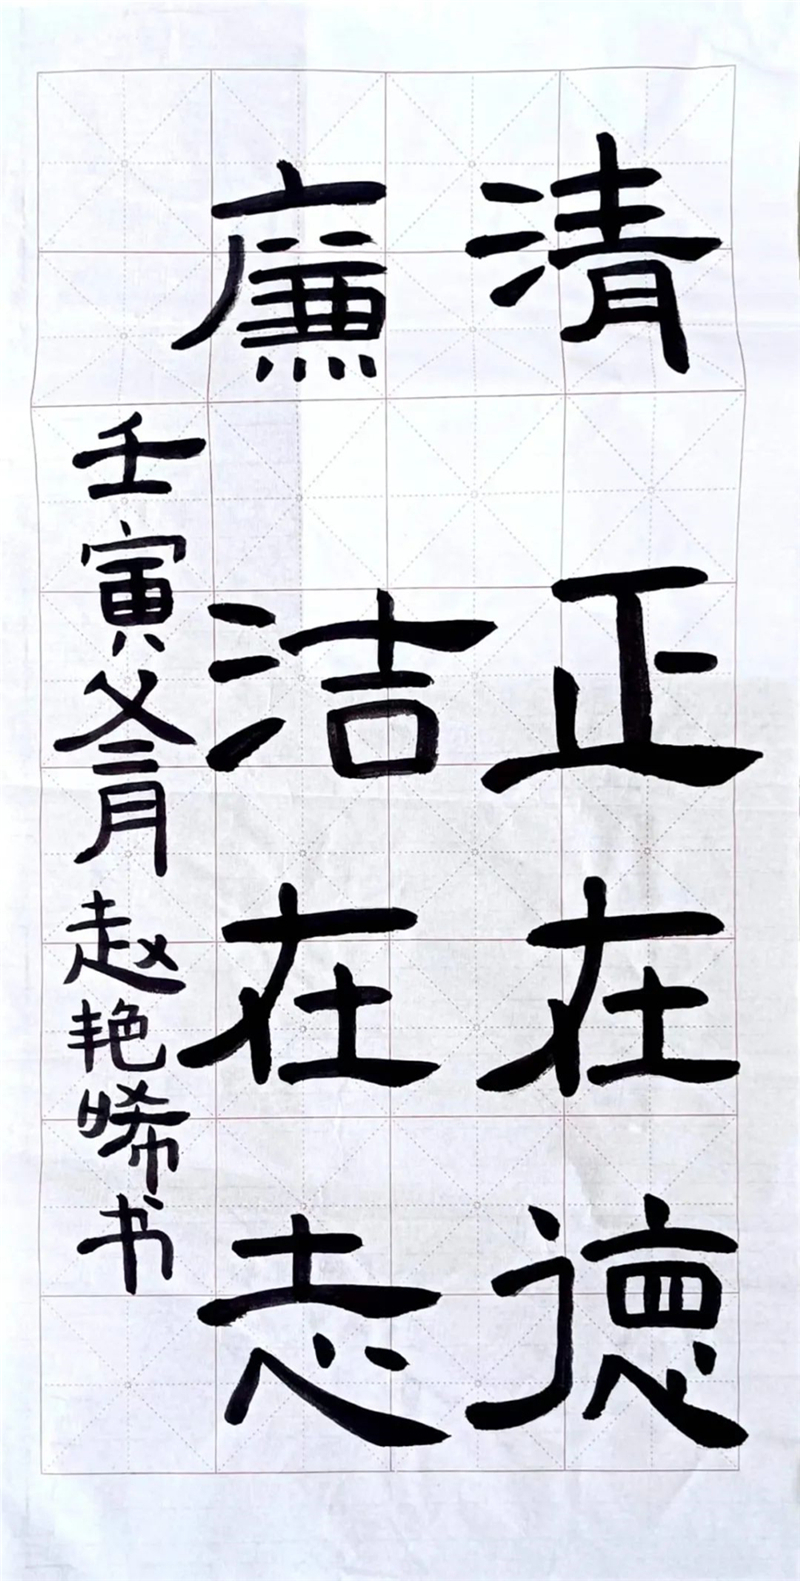 清正在德
廉洁在志
壬寅冬月赵艳晞书